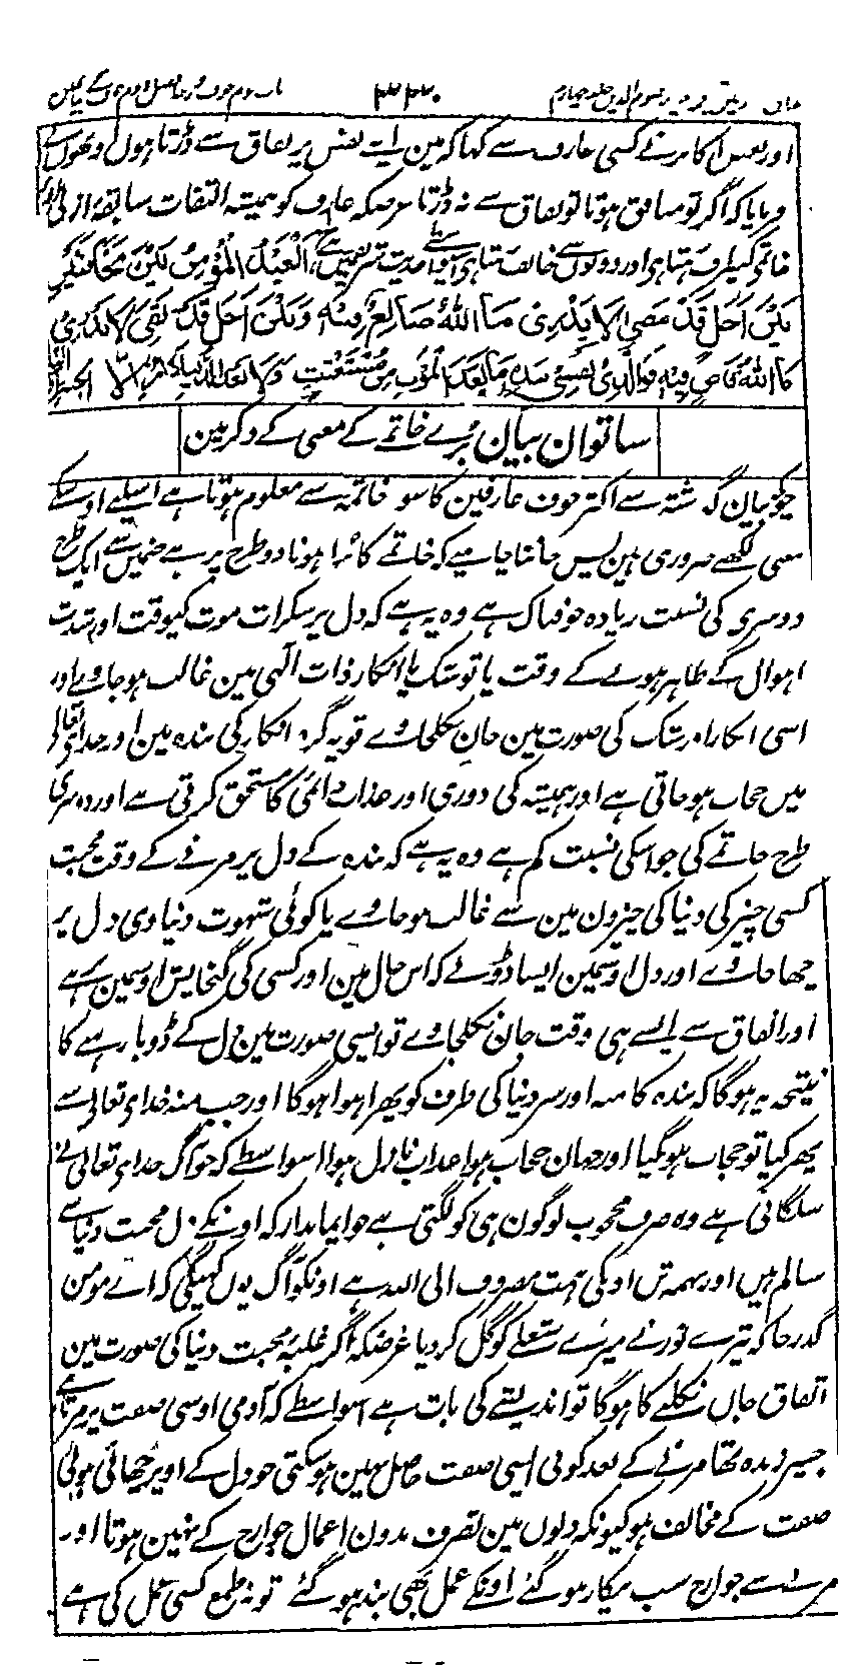 ۳۳۰
اور بعض اکابر نے کسی عارف سے کہا کہ مین اپنے نفس پر نفاق سے ڈرتا ہون اونھون نے
فرمایا کہ اگر تو منافق ہوتا تو نفاق سے نہ ڈرتا غرضکہ عارف کو ہمیشہ التفات سابقہ ازلی اور
خاتمہ کیطرف رہتا ہی اور دونون سے خائف رہتا ہی اسیواسطے حدیث شریف مین ہے العَبْدُ الْمُؤْمِنُ بَيْنَ مَخَافَتَيْنِ
بَيْنَ أَجَلٍ قَدْ مَضٰى لَا يَدْرِى مَا اللهُ صَانِعٌ فِيْهِ وَبَيْنَ أَجَلٍ قَدْ بَقِىَ لَا يَدْرِى
مَا اللهُ قَاضٍ فِيْهِ فَوَالَّذِى نَفْسِىْ بِيَدِهٖ مَا بَعْدَ الْمَوْتِ مِنْ مُسْتَعْتَبٍ وَلَا بَعْدَ الدُّنْيَا دَارٌ اِلَّا الجنة
ساتوان بیان بُرے خاتمے کے معنی کے ذکر مین
چونکہ بیان گذشتہ سے اکثر خوف عارفین کا سوء خاتمہ سے معلوم ہوتا ہے اسلیے اوسکے
معنی لکھنے ضروری ہین پس جاننا چاہیے کہ خاتمے کا بُرا ہونا دو طرح پر ہے جنمین سے ایک طرح
دوسری کی نسبت زیادہ خوفناک ہے وہ یہ ہے کہ دل پر سکرات موت کیوقت اور شدت
اہوال کے ظاہر ہونے کے وقت یا تو شک یا انکار ذات الٰہی مین غالب ہو جاوے اور
اسی انکار اور شک کی صورت مین جان نکلجاوے تو یہ گرہ انکار کی بندہ مین اور خداے تعالی
مین حجاب ہو جاتی ہے اور ہمیشہ کی دوری اور عذاب دائمی کا مستحق کرتی ہے اور دوسری
طرح خاتمے کی جو اسکی نسبت کم ہے وہ یہ ہے کہ بندہ کے دل پر مرنے کے وقت محبت
کسی چیز کی دنیا کی چیزون مین سے غالب ہو جاوے یا کوئی شہوت دنیاوی دل پر
چھا جاوے اور دل اوسمین ایسا ڈوبے کہ اس حال مین اور کسی کی گنجایش اوسمین نرہے
اور اتفاق سے ایسے ہی وقت جان نکلجاوے تو ایسی صورت مین دل کے ڈوبا رہنے کا
نتیجہ یہ ہوگا کہ بندہ کا منہ اور سر دنیا کی طرف کو پھرا ہوا ہوگا اور جب منہ خداے تعالی سے
پھر گیا تو حجاب ہوگیا اور جہان حجاب ہوا عذاب نازل ہوا اسواسطے کہ جو آگ خداے تعالی نے
سلگائی ہے وہ صرف محجوب لوگون ہی کو لگتی ہے جو ایماندار کہ اونکے دل محبت دنیا سے
سالم ہین اور ہمہ تن اونکی ہمت مصروف الی اللہ ہے اونکو آگ یون کہیگی کہ اے مومن
گذر جا کہ تیرے نور نے میرے شعلے کو گل کر دیا غرضکہ اگر غلبۂ محبت دنیا کی صورت مین
اتفاق جان نکلنے کا ہوگا تو اندیشے کی بات ہے اسواسطے کہ آدمی اوسی صفت پر مرتا ہے
جسپر زندہ تھا مرنے کے بعد کوئی ایسی صفت حاصل نہین ہو سکتی جو دل کے اوپر چھائی ہوئی
صفت کے مخالف ہو کیونکہ دلون مین تصرف بدون اعمال جوارح کے نہین ہوتا اور
مرنے سے جوارح سب بیکار ہو گئے اونکے عمل بھی بند ہو گئے تو نہ طمع کسی عمل کی ہے